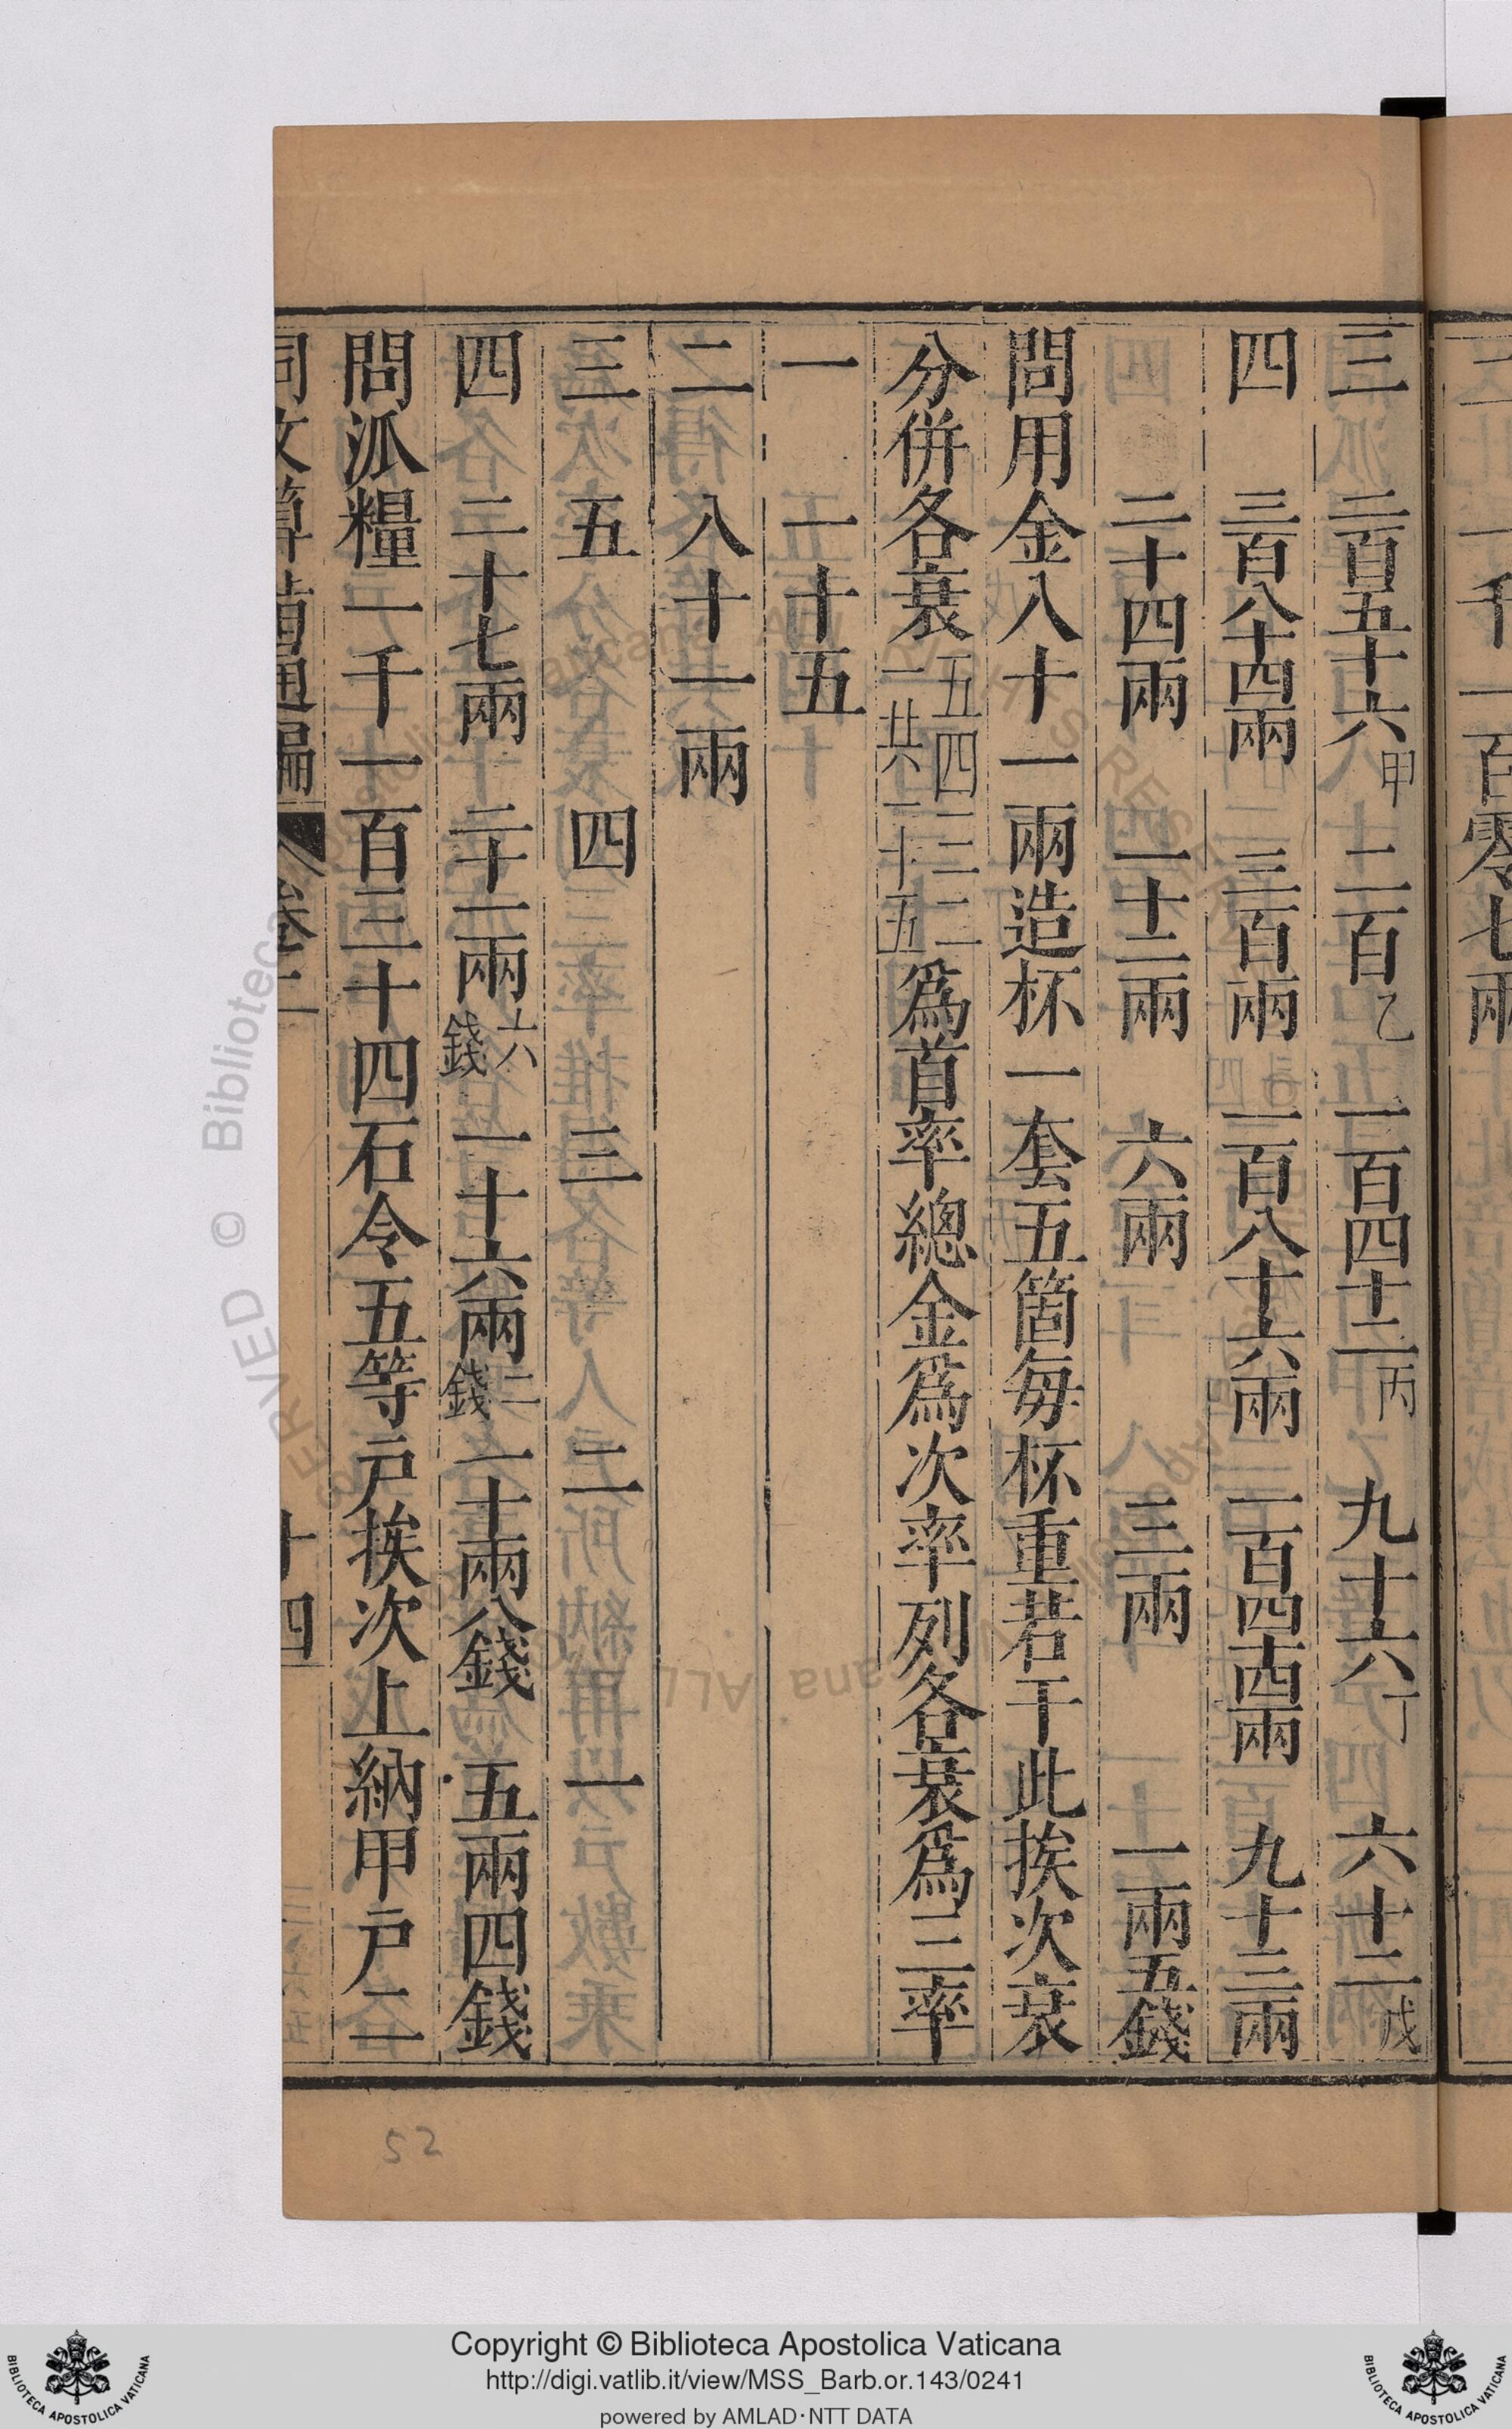 二 一千一百零七兩
三 二百五十六甲 二百乙 一百四十二丙 九十六丁 六十二戊
四 三百八十四兩 三百兩 一百八十六兩 一百四十四兩 九十三兩
二十四兩 一十二兩 六兩 三兩 一兩五錢
問用金八十一兩造杯一套五箇每杯重若干此挨次衰
分併各衰五四三二一共一十五爲首率總金爲次率列各衰爲三率
一 一十五
二 八十一兩
三 五 四 三 二 一
四 二十七兩 二十一兩六錢 一十六兩二錢 一十兩八錢 五兩四錢
問派糧一千一百三十四石令五等戶挨次上納甲戶二
同文算指通編 卷二 十四
52
© Biblioteca Apostolica Vaticana ALL RIGHTS RESERVED
Copyright © Biblioteca Apostolica Vaticana
http://digi.vatlib.it/view/MSS_Barb.or.143/0241
powered by AMLAD·NTT DATA
BIBLIOTECA APOSTOLICA VATICANA
BIBLIOTECA APOSTOLICA VATICANA